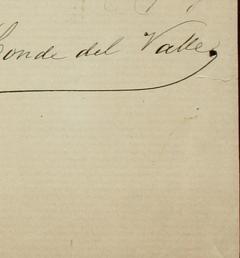 Conde del Valle